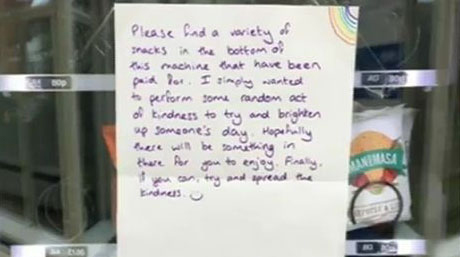 Please find a variety of
snacks in the bottom of
this machine that have been
paid for. I simply wanted
to perform some random act
of kindness to try and brighten
up someone's day. Hopefully
there will be something in
there for you to enjoy. Finally,
if you can, try and spread the
kindness. ☺
80p
MANOMASA